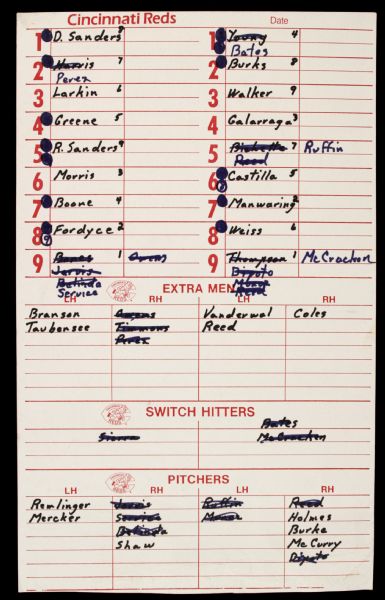 Cincinnati Reds Date
1 D. Sanders 8 1 Young 4
Bates
2 Harris 7 2 Burks 8
Perez
3 Larkin 6 3 Walker 9
4 Greene 5 4 Galarraga 3
5 R. Sanders 9 5 Bichette 7 Ruffin
Reed
6 Morris 3 6 Castilla 5
7 Boone 4 7 Manwaring 2
8 Fordyce 2 8 Weiss 6
9 1 Owens 9 Thompson 1 McCracken
Jarvis Dipoto
Belinda Munoz
Service Reed
EXTRA MEN
LH RH LH RH
Branson Owens Vanderwal Coles
Taubensee Timmons Reed
Perez
SWITCH HITTERS
Sierra Bates
McCracken
PITCHERS
LH RH LH RH
Remlinger Jarvis Ruffin Reed
Mercker Service Munoz Holmes
Belinda Burke
Shaw McCurry
Dipoto